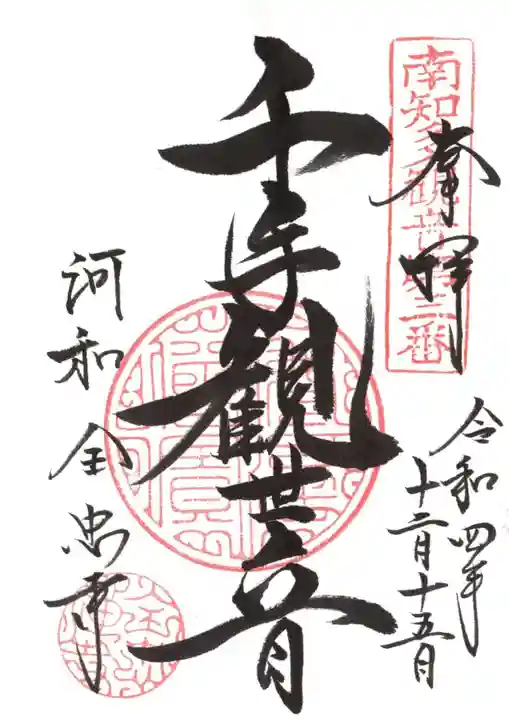 奉拝
南知多観音第三番
令和四年
十二月十五日
千手観世音
河和
全忠寺